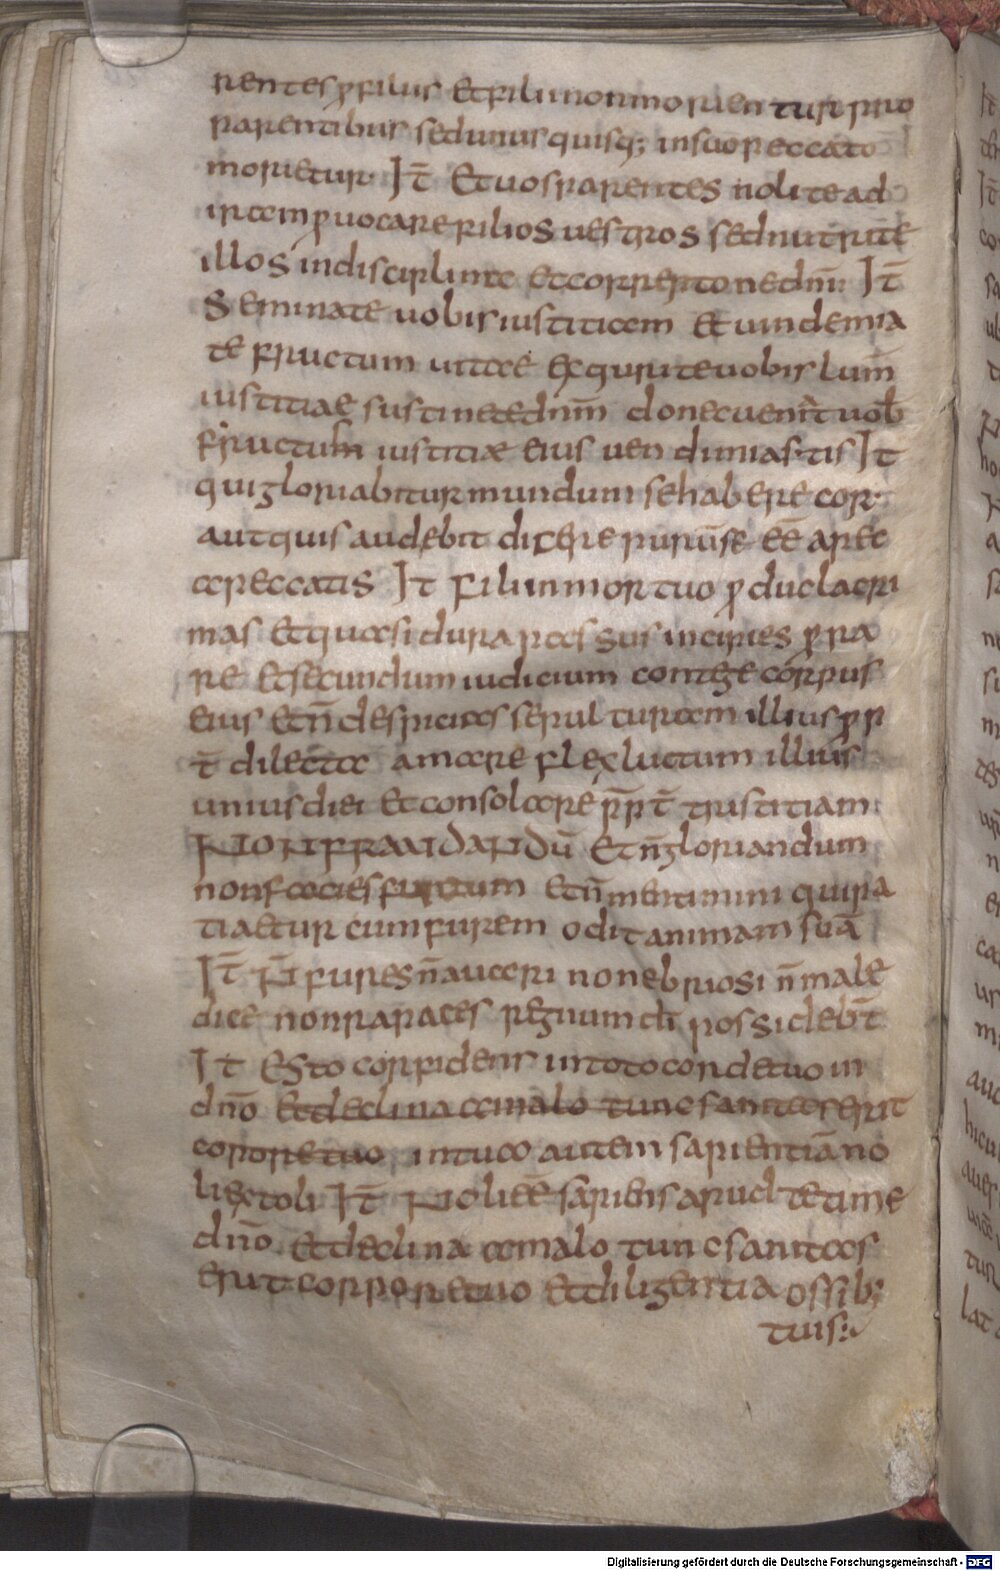 rentes ꝓ filiis et filii non morientur pro
parentibus sed unus quisq; in suo peccato
morietur It̄ Et uos parentes nolite ad
ircam ꝓuocare filios uestros sed nutrite
illos in disciplina et correptione dn̄i It̄
Seminate uobis iustitiam et uindemia
te fructum uitae exquirite uobis lum̄
iustitiae sustinete dnm̄ donec ueniat uob̄
fructum iustitiæ eius uendimiastis It
qui gloriabitur mundum se habere cor
aut quis audebit dicere purūse eē apec
a peccatis It Fili in mortuo ꝓduc lacri
mas et quasi dura passus incipies ꝓra
re et secundum iudicium contege corpus
eius et n̄ despicias sepulturam illius ꝓp
t̄ dilecta amare fle luctum illius
unius diei et consolare ꝓp̄t̄ tristitiam
NON FRAUDANDŪ Et n̄ gloriandum
non facies furtum et n̄ mentimini qui pa
tiaetur cum furem odit animam suā
It̄ N̄ fures n̄ auari non ebriosi n̄ male
dice non rapaces regnum di possideb̄t
It Esto confidens in toto corde tuo in
dn̄o et declina a malo tunc sanitas erit
corpore tuo in tua autem sapientiā no
li extoli It̄ Noli eē sapiens apud te time
dn̄o et declina a malo tunc sanitas
erit corpore tuo et diligentia ossib;
tuis:
Digitalisierung gefördert durch die Deutsche Forschungsgemeinschaft - DFG